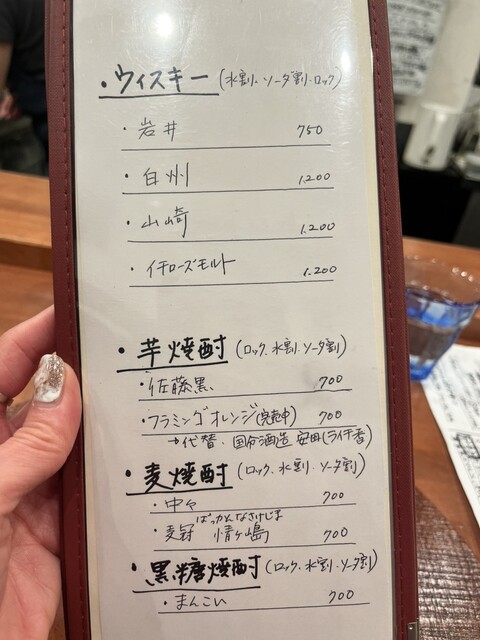 ・ウィスキー(水割・ソーダ割・ロック)
・岩井 750
・白州 1.200
・山崎 1.200
・イチローズモルト 1.200
・芋焼酎(ロック、水割・ソーダ割)
・佐藤黒 700
・フラミンゴオレンジ(完売中) 700
→代替・国分酒造 安田(ライチ香)
・麦焼酎(ロック、水割・ソーダ割)
・中々 700
ばっかんなさけじま
・麦冠 情ヶ島 700
・黒糖焼酎(ロック、水割・ソーダ割)
・まんこい 700